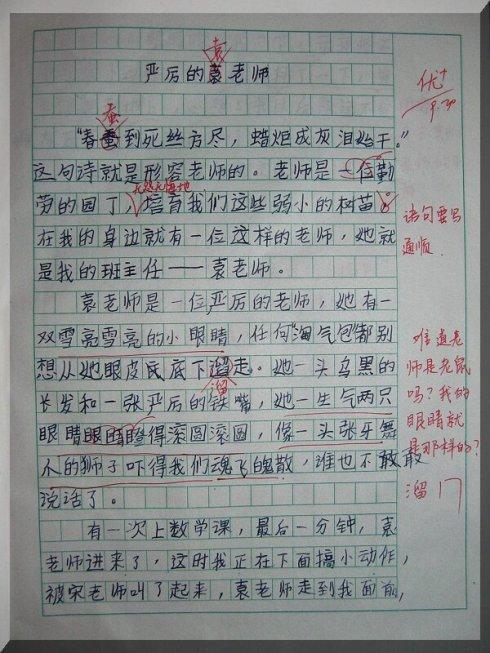 袁
严厉的袁老师
优+
9.30
蚕
"春蚕到死丝方尽，蜡炬成灰泪始干。"
这句诗就是形容老师的。老师是一位勤
无怨无悔地
劳的园丁，培育我们这些弱小的树苗。
语句要写
通顺
在我的身边就有一位这样的老师，她就
是我的班主任——袁老师。
袁老师是一位严厉的老师，她有一
双雪亮雪亮的小眼睛，任何"淘气包"都别
想从她眼皮底底下溜走。她一头乌黑的
溜
长发和一张严厉的铁嘴，她一生气两只
难道老
师是老鼠
吗？我的
眼睛就
是那样的？
眼睛眼睛瞪得滚圆滚圆，像一头张牙舞
爪的狮子吓得我们魂飞魄散，谁也不敢
说话了。
溜门
有一次上数学课，最后一分钟，袁
老师进来了，这时我正在下面搞小动作，
被宋老师叫了起来，袁老师走到我面前，